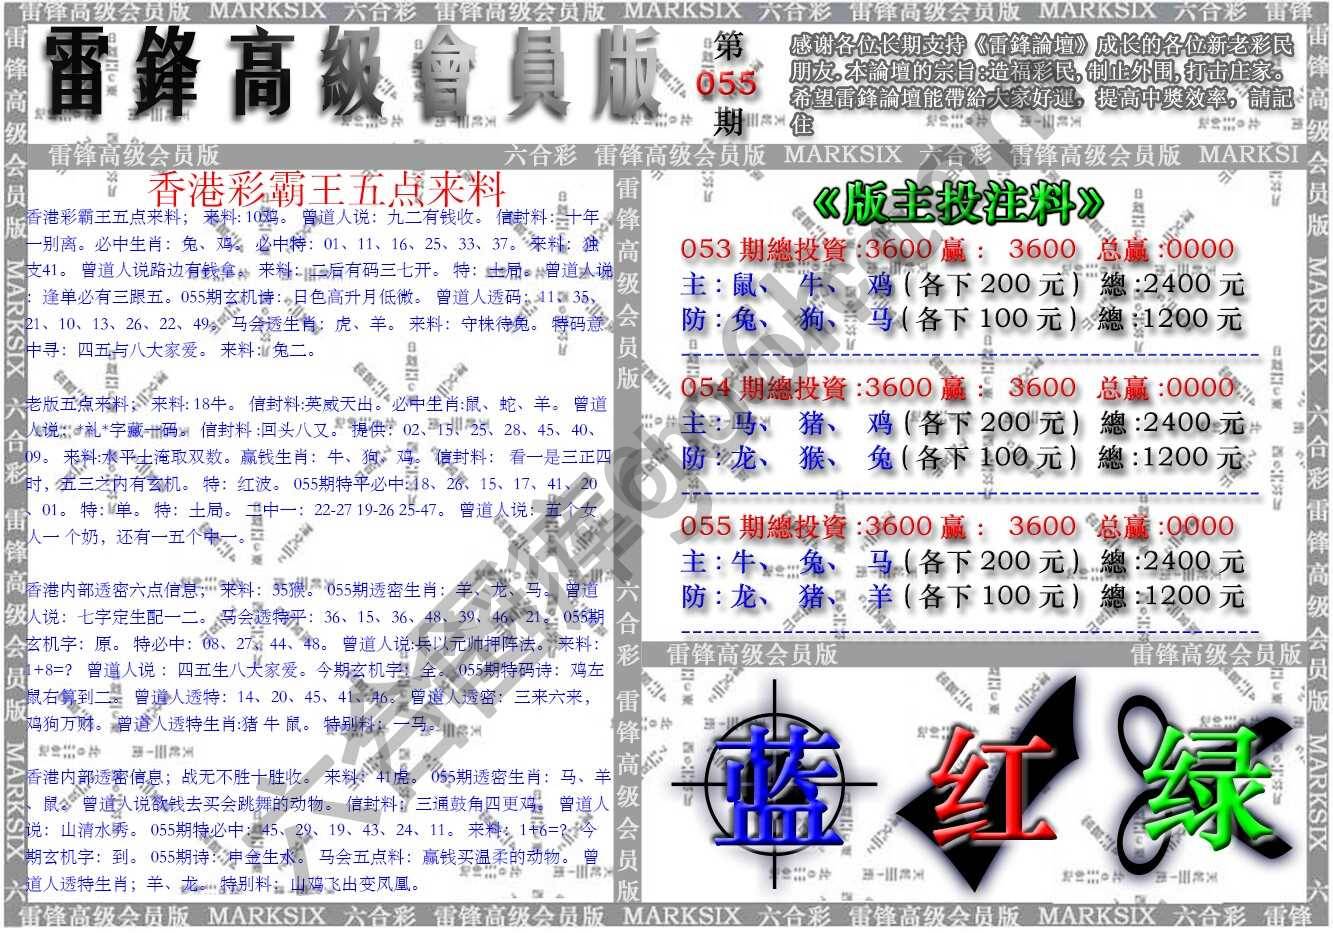 雷锋高级会员版 MARKSIX 六合彩 雷锋高级会员版 MARKSIX 六合彩 雷锋高级会员版 MARKSIX 六合彩 雷锋
雷鋒高級會員版
第
055
期
感谢各位长期支持《雷鋒論壇》成长的各位新老彩民
朋友.本論壇的宗旨:造福彩民,制止外围,打击庄家。
希望雷鋒論壇能帶給大家好運，提高中獎效率，請記
住
雷锋高级会员版 六合彩 雷锋高级会员版 MARKSIX 六合彩 雷锋高级会员版 MARKSI
香港彩霸王五点来料
香港彩霸王五点来料； 来料: 10鸡。 曾道人说：九二有钱收。 信封料：十年
一别离。必中生肖：兔、鸡。 必中特：01、11、16、25、33、37。 来料：独
支41。 曾道人说路边有钱拿。 来料：二后有码三七开。 特：土局。 曾道人说
：逢单必有三跟五。055期玄机诗：日色高升月低微。 曾道人透码：11、35、
21、10、13、26、22、49。 马会透生肖：虎、羊。 来料：守株待兔。 特码意
中寻：四五与八大家爱。 来料：兔二。
老版五点来料； 来料: 18牛。 信封料:英威天出。必中生肖:鼠、蛇、羊。 曾道
人说：*礼*字藏一码。 信封料 :回头八又。 提供：02、15、25、28、45、40、
09。 来料:水平土淹取双数。赢钱生肖：牛、狗、鸡。 信封料： 看一是三正四
时，五三之内有玄机。 特：红波。 055期特平必中:18、26、15、17、41、20
、01。 特：单。 特：土局。 二中一：22-27 19-26 25-47。 曾道人说：五个女
人一 个奶，还有一五个中一。
香港内部透密六点信息； 来料：35猴。 055期透密生肖：羊、龙、马。 曾道
人说：七字定生配一二。 马会透特平：36、15、36、48、39、46、21。 055期
玄机字：原。 特必中：08、27、44、48。 曾道人说:兵以元帅押阵法。 来料：
1+8=？ 曾道人说 ：四五生八大家爱。今期玄机字：全。 055期特码诗：鸡左
鼠右算到二。 曾道人透特：14、20、45、41、46。 曾道人透密：三来六来，
鸡狗万财。 曾道人透特生肖:猪 牛 鼠。 特别料：一马。
香港内部透密信息；战无不胜十胜收。 来料：41虎。 055期透密生肖：马、羊
、鼠。 曾道人说欲钱去买会跳舞的动物。 信封料：三通鼓角四更鸡。 曾道人
说：山清水秀。 055期特必中：45、29、19、43、24、11。 来料：1+6=？ 今
期玄机字：到。 055期诗：申金生水。 马会五点料：赢钱买温柔的动物。 曾
道人透特生肖；羊、龙。 特别料：山鸡飞出变凤凰。
《版主投注料》
053 期總投資 :3600 赢： 3600 总赢 :0000
主 : 鼠、 牛、 鸡 ( 各下 200 元 ) 總 :2400 元
防 : 兔、 狗、 马 ( 各下 100 元 ) 總 :1200 元
054 期總投資 :3600 赢： 3600 总赢 :0000
主 : 马、 猪、 鸡 ( 各下 200 元 ) 總 :2400 元
防 : 龙、 猴、 兔 ( 各下 100 元 ) 總 :1200 元
055 期總投資 :3600 赢： 3600 总赢 :0000
主 : 牛、 兔、 马 ( 各下 200 元 ) 總 :2400 元
防 : 龙、 猪、 羊 ( 各下 100 元 ) 總 :1200 元
雷锋高级会员版 雷锋高级会员版
蓝 红 绿
雷锋高级会员版 MARKSIX 六合彩 雷锋高级会员版 MARKSIX 六合彩 雷锋高级会员版 MARKSIX 六合彩 雷锋